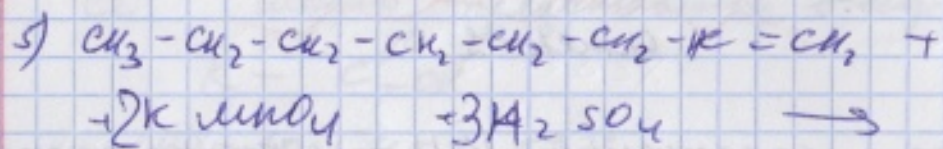 5) CH3-CH2-CH2-CH2-CH2-CH2-HC=CH2 +
+2K MnO4 +3H2SO4 →